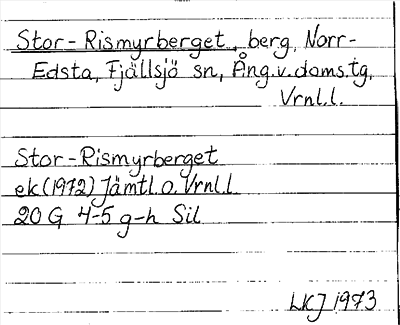 Stor-Rismyrberget, berg, Norr-
Edsta, Fjällsjö sn, Ång.v.doms.tg,
Vrnl.l.
Stor-Rismyrberget
ek (1972) Jämtl.o.Vrnl.l
20 G 4-5 g-h Sil
LKJ 1973